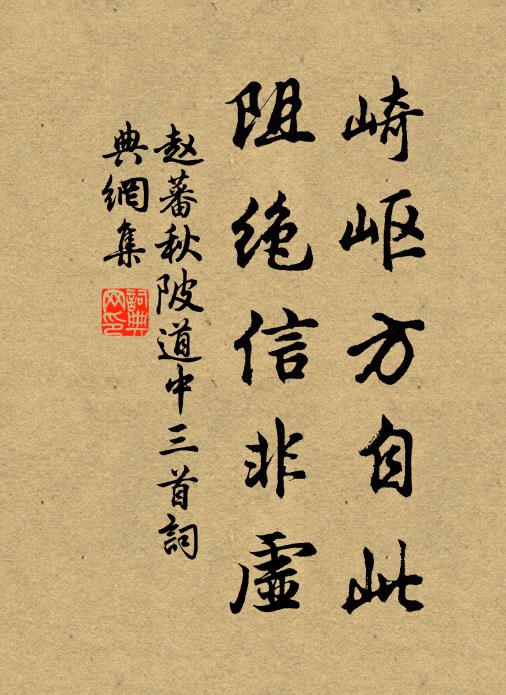 崎岖方自此
阻绝信非虚
赵蕃秋陂道中三首詞
典網集
詞典網印